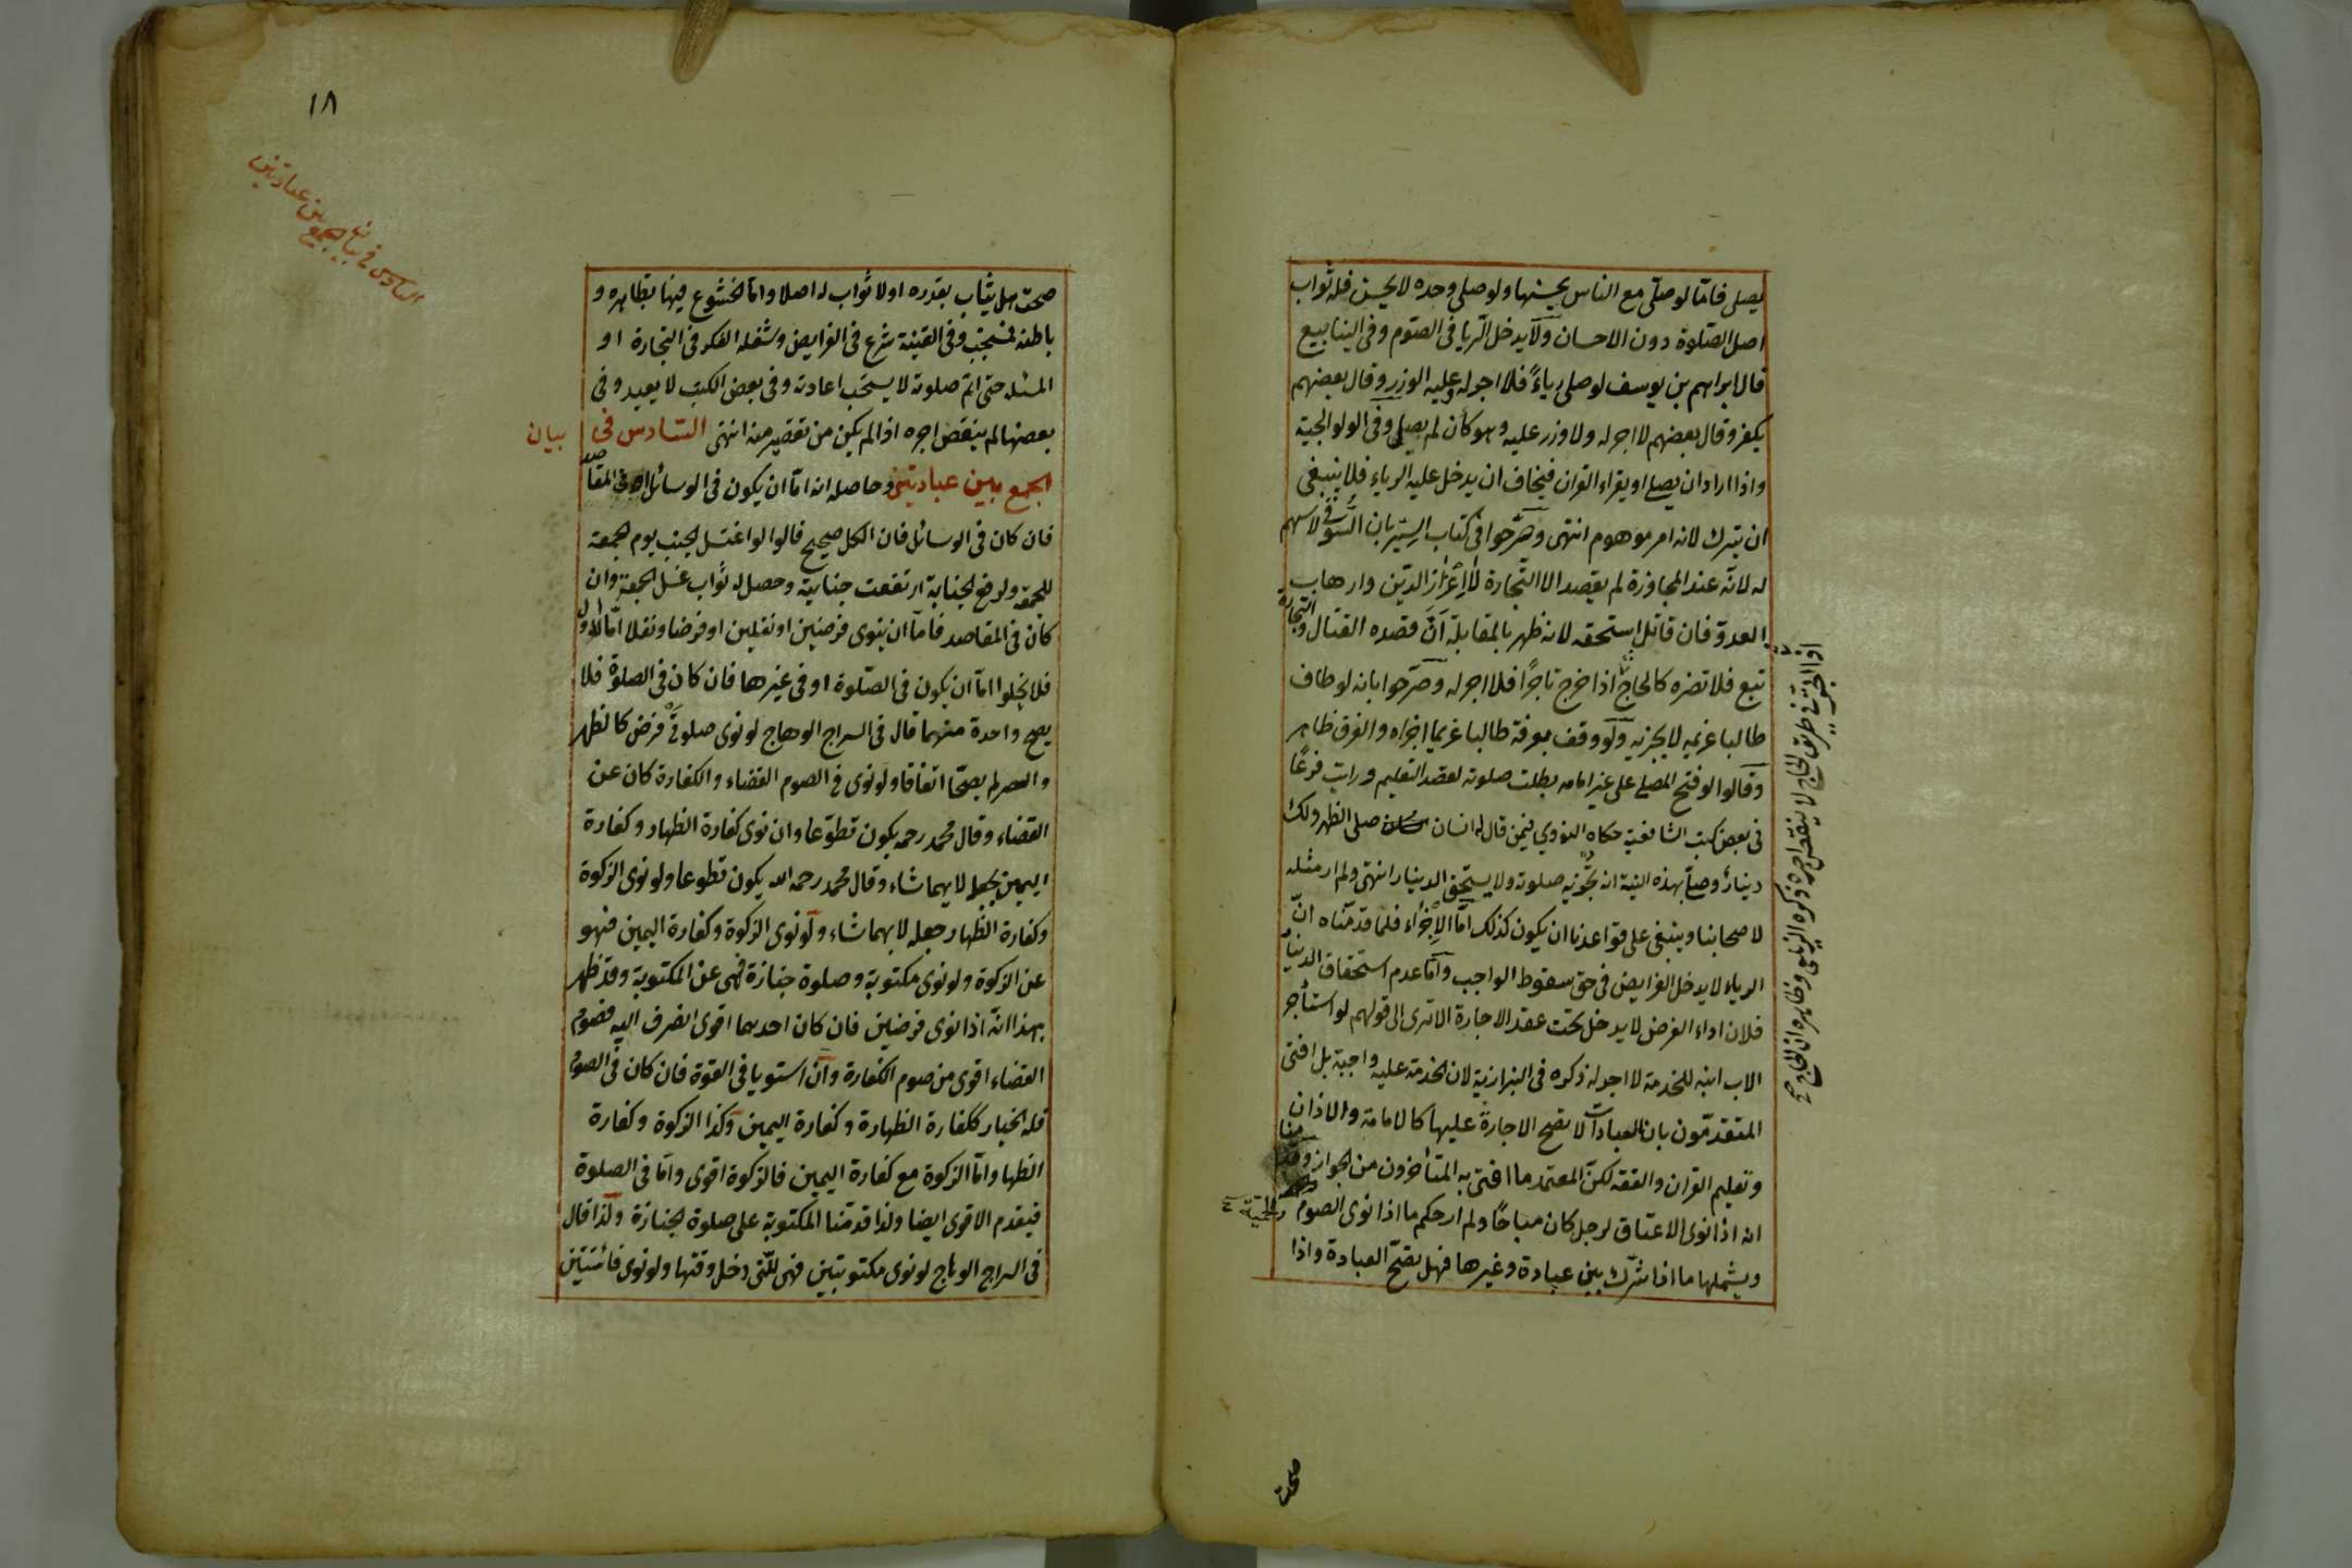 يصلى فاما لو صلى مع الناس يحسنها ولو صلى وحده لا يحسن فله ثواب
اصل الصلوة دون الاحسان ولا يدخل الريا فى الصوم وفى الينابيع
قال ابراهيم بن يوسف لو صلى رياءً فلا اجر له وعليه الوزر وقال بعضهم
يكفر وقال بعضهم لا اجر له ولا وزر عليه وهو كأن لم يصل وفى الولوالجية
واذا اراد ان يصلى او يقراء القران فيخاف ان يدخل عليه الرياء فلا ينبغى
ان يترك لانه امر موهوم انتهى وصرحوا فى كتاب السير بان السوقى لا سهم
له لانه عند المجاوزة لم يقصد الا التجارة لا اعزاز الدين وارهاب
العدو فان قاتل استحقه لانه ظهر بالمقابلة ان قصده القتال والتجارة
تبع فلا تضره كالحاج اذا خرج تاجرا فلا اجر له وصرحوا بانه لو طاف
طالبا غريمه لا يجزيه ولو وقف بعرفة طالبا غريما اجزاه والفرق ظاهر
وقالوا لو فتح المصلى على غير امامه بطلت صلوته لقصد التعليم ورايت فرعًا
فى بعض كتب الشافعية حكاه النووي فيمن قال له انسان صلى الظهر ولك
دينار وصلى بهذه النية انه تجزيه صلوته ولا يستحق الدينار انتهى ولم ار مثله
لاصحابنا وينبغى على قواعدنا ان يكون كذلك اما الإجزاء فلما قدمناه انّ
الرياء لا يدخل الفرايض فى حق سقوط الواجب واما عدم استحقاق الدينار
فلان اداء الفرض لا يدخل تحت عقد الاجارة الا ترى الى قولهم لو استأجر
الاب ابنه للخدمة لا اجر له ذكره فى البزازية لان الخدمة عليه واجبة بل افتى
المتقدمون بان العبادات لا تصح الاجارة عليها كالامامة والاذان
وتعليم القران والفقه لكن المعتمد ما افتى به المتأخرون من الجواز وقدمنا
انه اذا نوى الاعتاق لرجل كان مباحًا ولم ار حكم ما اذا نوى الصوم والحمية
ويشملها ما اذا شرك بين عبادة وغيرها فهل تصح العبادة واذا
اذا اتجر فى طريق الحاج لا ينقص اجره ذكره الزيلعى وظاهره ان الحاج صح
صحت
١٨
السادس فى بيان الجمع بين عبادتين
صحت هل يثاب بقدره او لا ثواب له اصلا واما الخشوع فيها بظاهره و
باطنه فمستحب وفى القنية شرع فى الفرايض وشغله الفكر فى التجارة او
المسئلة حتى اتم صلوته لا يستحب اعادته وفى بعض الكتب لا يعيد وفى
بعضها لم ينقص اجره اذا لم يكن من تقصير منه انتهى السادس فى بيان
الجمع بين عبادتين وحاصله انه اما ان يكون فى الوسائل او فى المقاصد
فان كان فى الوسائل فان الكل صحيح قالوا لو اغتسل الجنب يوم الجمعة
للجمعة ولرفع الجنابة ارتفعت جنابته وحصل له ثواب غسل الجمعة وان
كان فى المقاصد فاما ان ينوى فرضين او نفلين او فرضا ونفلا اما الاول
فلا يخلوا اما ان يكون فى الصلوة او فى غيرها فان كان فى الصلوة فلا
يصح واحدة منهما قال فى السراج الوهاج لو نوى صلوتى فرض كالظهر
والعصر لم يصحا اتفاقا ولو نوى فى الصوم القضاء والكفارة كان عن
القضاء وقال محمد رحمه يكون تطوعا وان نوى كفارة الظهار وكفارة
اليمين يجعل لايهما شاء وقال محمد رحمه الله يكون تطوعا ولو نوى الزكوة
وكفارة الظهار جعله لايهما شاء ولو نوى الزكوة وكفارة اليمين فهو
عن الزكوة ولو نوى مكتوبة وصلوة جنازة فهى عن المكتوبة وقد ظهر
بهذا انه اذا نوى فرضين فان كان احدهما اقوى انصرف اليه فصوم
القضاء اقوى من صوم الكفارة وان استويا فى القوة فان كان فى الصوم
فله الخيار ككفارة الظهارة وكفارة اليمين وكذا الزكوة وكفارة
الظهار واما الزكوة مع كفارة اليمين فالزكوة اقوى واما فى الصلوة
فيقدم الاقوى ايضا ولذا قدمنا المكتوبة على صلوة الجنازة ولذا قال
فى السراج الوهاج لو نوى مكتوبتين فهى للتى دخل وقتها ولو نوى فائتتين